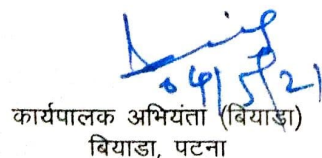 04/5/21
कार्यपालक अभियंता (बियाडा)
बियाडा, पटना